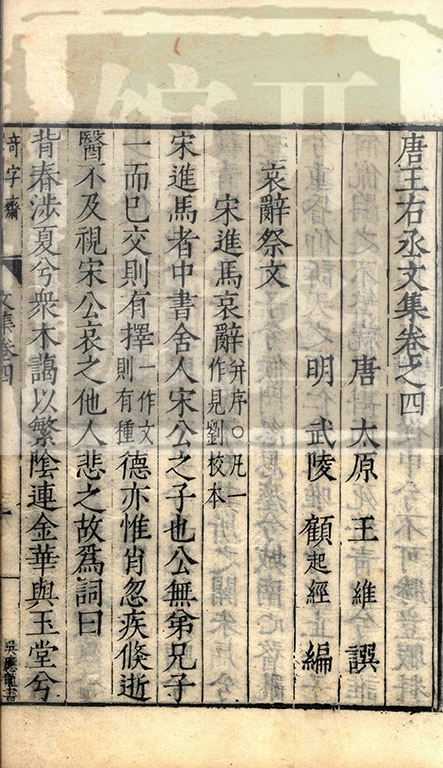 唐王右丞文集卷之四
唐 太原 王維 譔
明 武陵 顧起經 編
哀辭祭文
宋進馬哀辭 并序〇凡一作見劉校本
宋進馬者中書舍人宋公之子也公無弟兄子
一而已交則有擇一作文則有種德亦惟肖忽疾倏逝
醫不及視宋公哀之他人悲之故爲詞曰
背春涉夏兮衆木藹以繁陰連金華與玉堂兮
奇字齋
文集卷四
吳應龍書